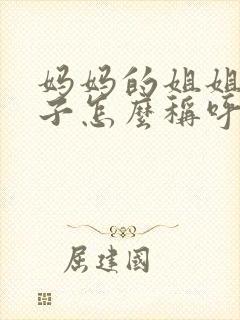 妈妈的姐姐
子怎麼稱呼
屈建國